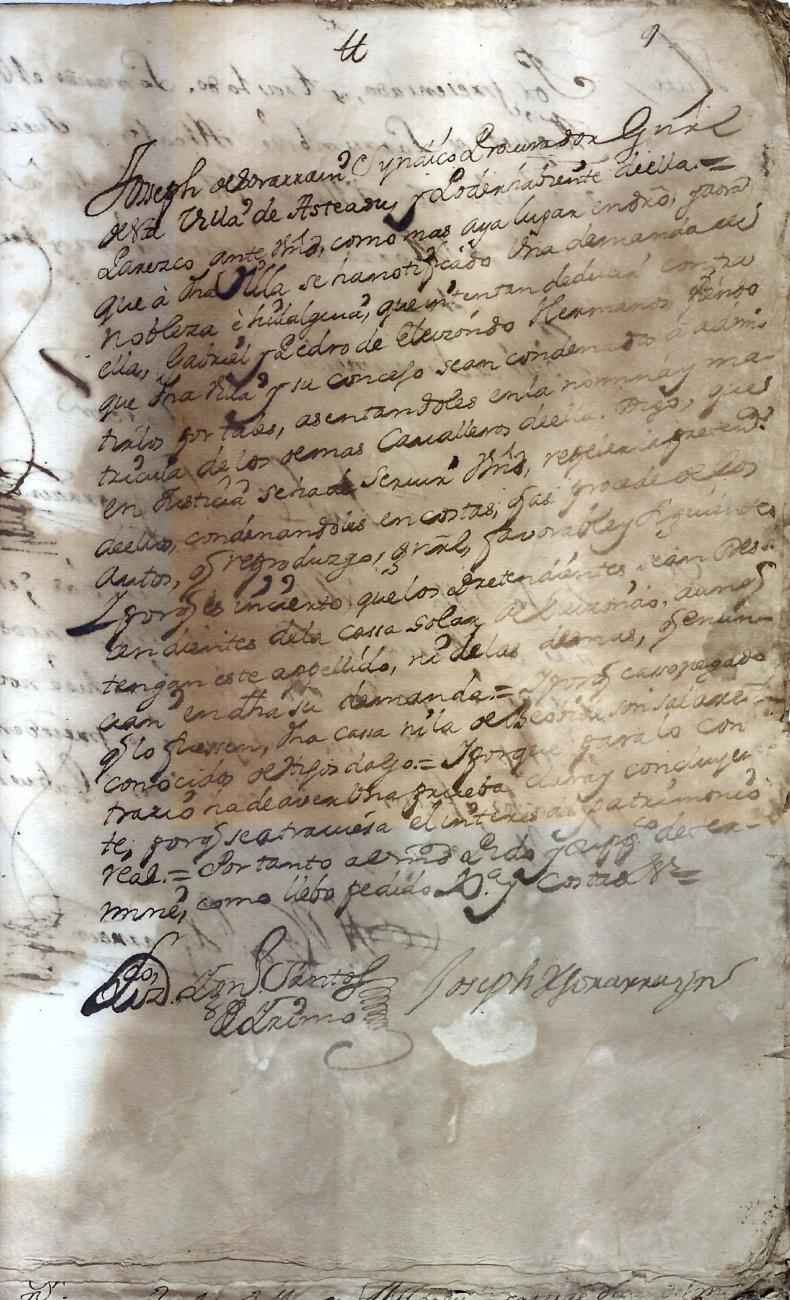 tt 9
Joseph de Sorarrain Syndico Procurador Gnrl
de la Villa de Asteasu, y Poderhaviente deella =
Parezco ante Vmd, como mas aya lugar endro, y
que à dha Villa se ha notificado Una demanda de
nobleza è hidalguia, que intentan deducir contra
ella, Gabriel y Pedro de Eleizondo Hermanos,
que dha Villa y su concejo sean condenados à admi
tirlos por tales, asentandoles en la nomina y ma-
tricula de los demas Cavalleros deella. Digo, que
en Justicia se ha de Servir Vmd, repeler la
deellos, condenandoles en costas, q asi procede de los
autos, q reproduzgo, gnral, favorable y Siguiente
Y porq es incierto que los Pretendientes sean Des
cendientes dela cassa solar de Eleizondo, aunq
tengan este appellido, ni de las demas, q enun
cian en dha su demanda = Y porq casso negado
q lo fuessen, dha cassa ni la de son solares
conocidos de hijos dalgo = Y porque para lo con
trario ha de aver Una prueba clara y concluyen
te, porq se atraviesa el interes del patrimonio
real = Portanto a Vmd Pido y supco deter-
mine, como llebo pedido Jusa y Costas &a =
Lizdo Dn Santos Joseph de Sorarrayn